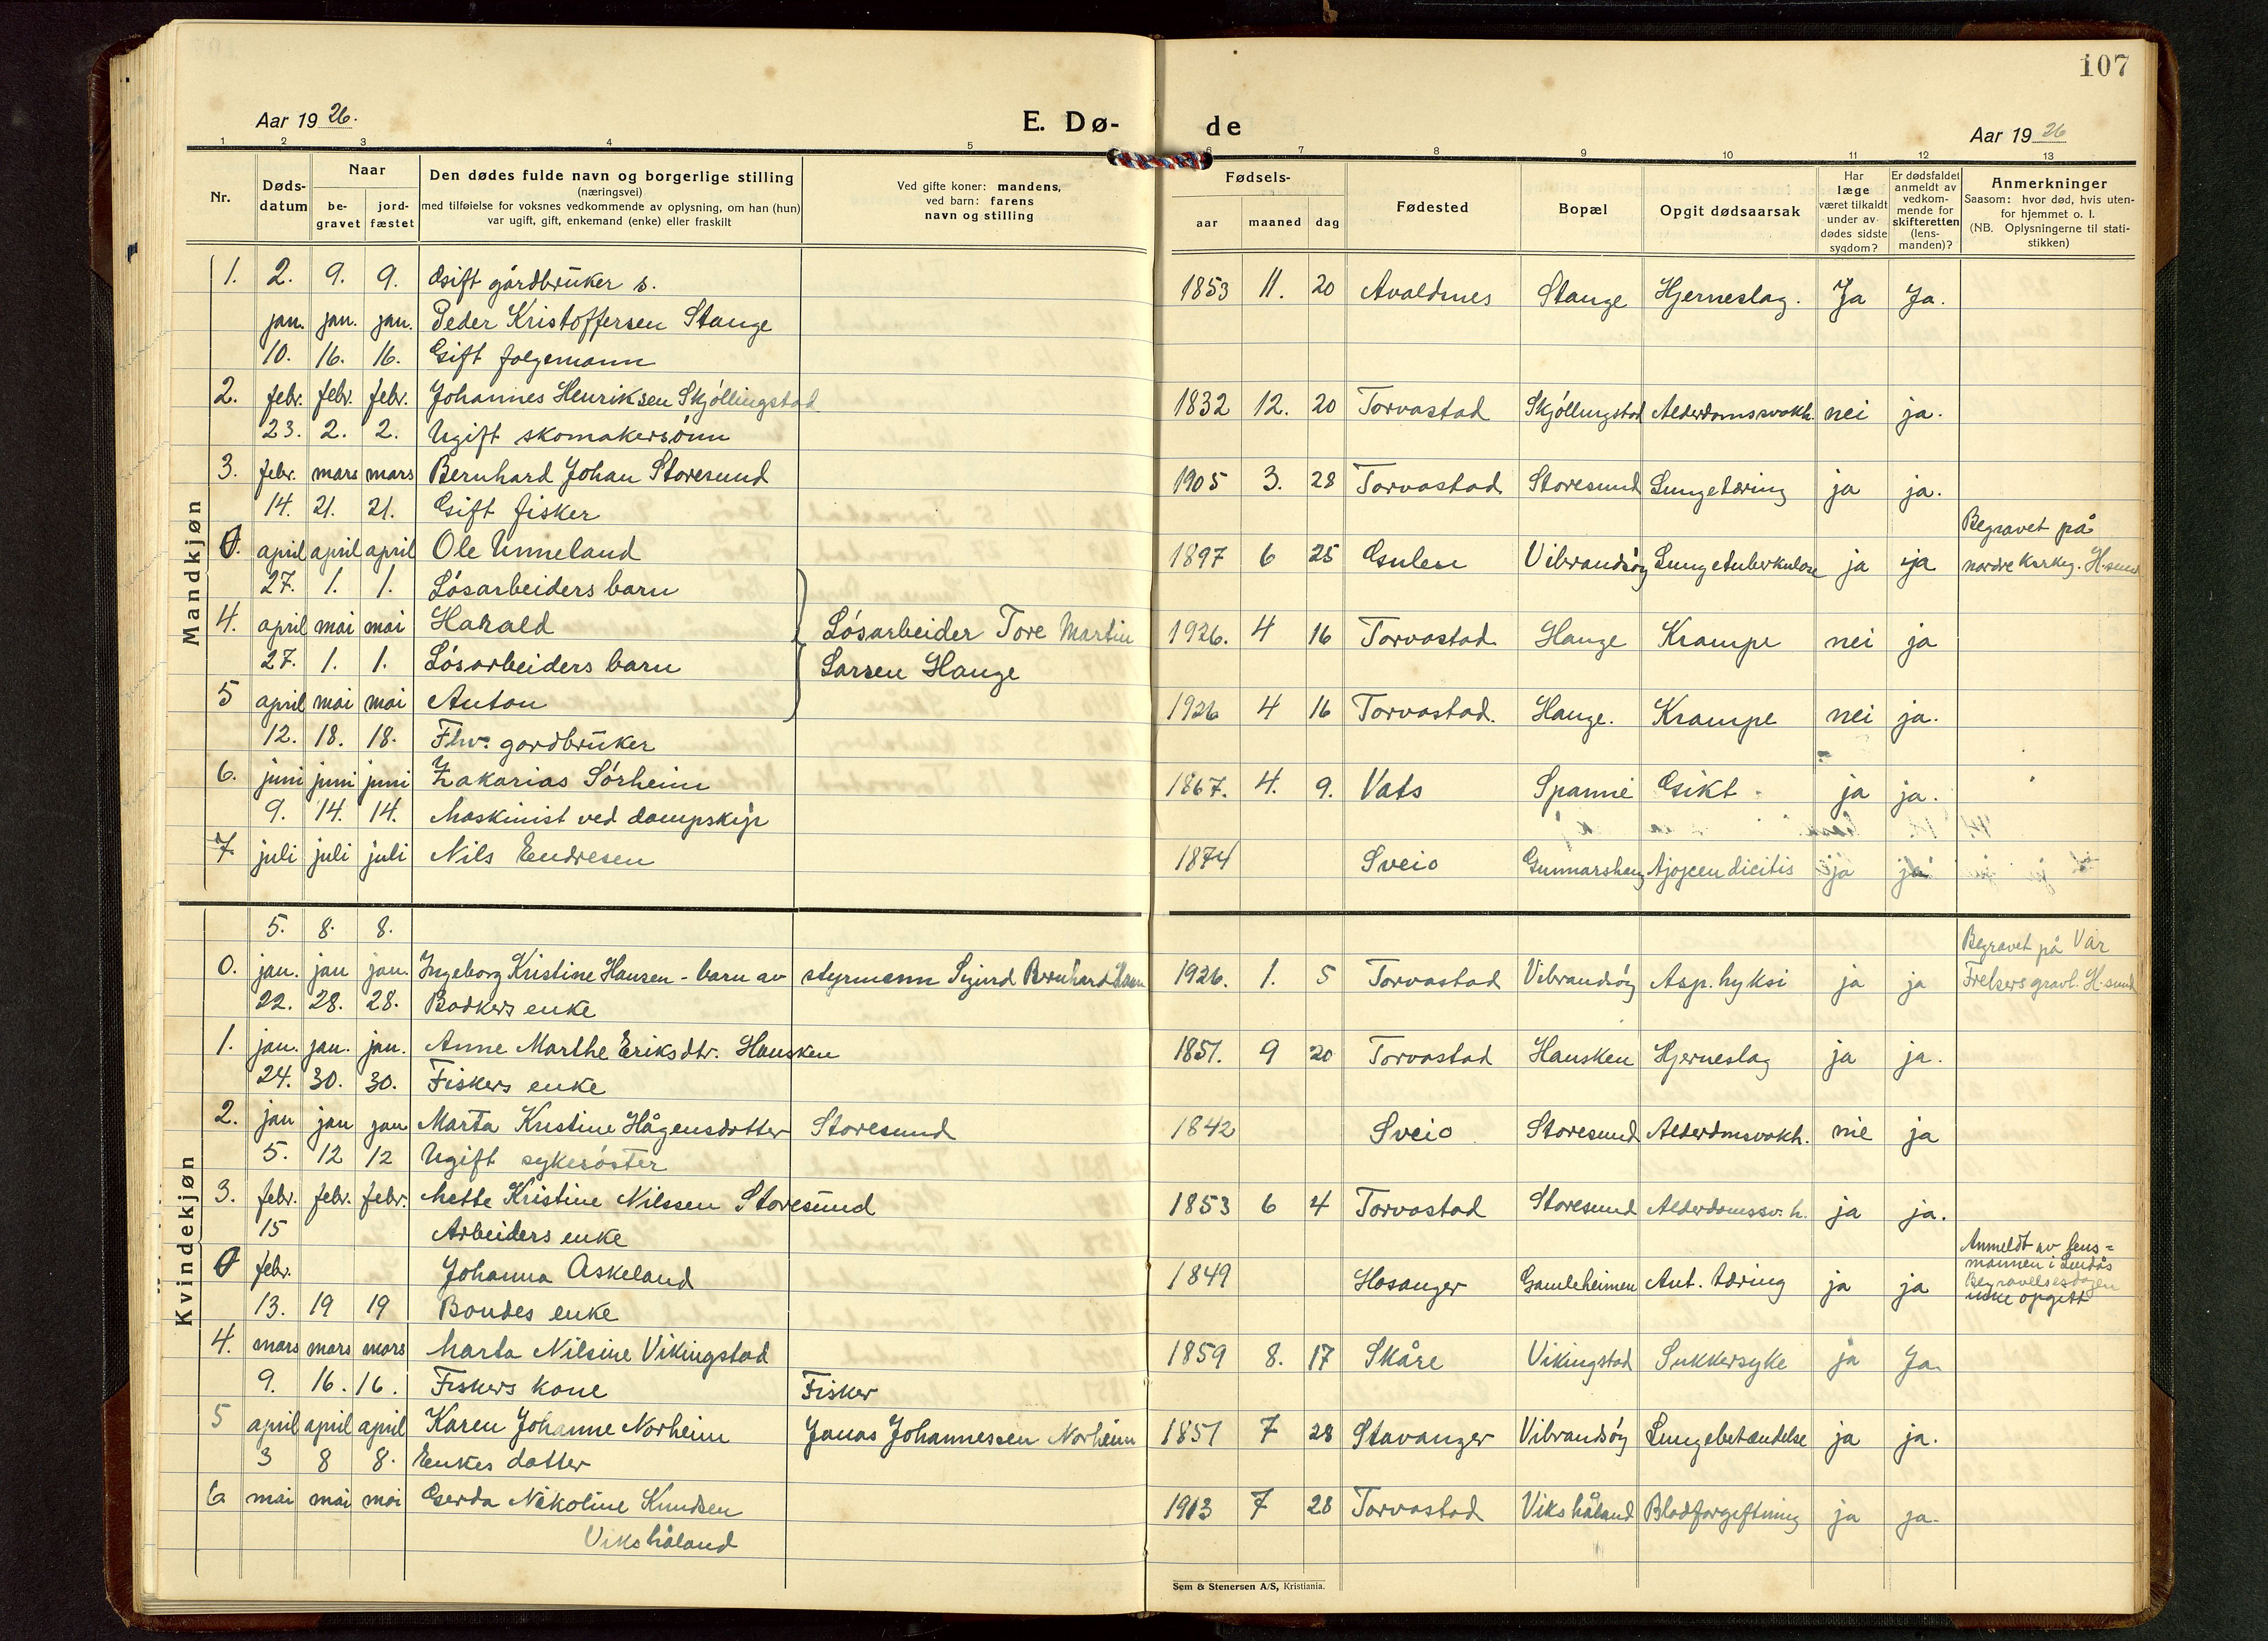 107
Aar 1926.
E. Dø-
de
Aar 1926
1 2 3 4 5 6 7 8 9 10 11 12 13
Nr.
Døds-
datum
Naar
be-
gravet
jord-
fæstet
Den dødes fulde navn og borgerlige stilling
(næringsvei)
med tilføielse for voksnes vedkommende av oplysning, om han (hun)
var ugift, gift, enkemand (enke) eller fraskilt
Ved gifte koner: mandens,
ved barn: farens
navn og stilling
Fødsels-
aar maaned dag
Fødested
Bopæl
Opgit dødsaarsak
Har
læge
været tilkaldt
under av-
dødes sidste
sygdom?
Er dødsfaldet
anmeldt av
vedkom-
mende for
skifteretten
(lens-
manden)?
Anmerkninger
Saasom: hvor død, hvis uten-
for hjemmet o. l.
(NB. Oplysningerne til stati-
stikken)
Mandkjøn
1. 2. 9. 9. Gift gårdbruker s. 1853 11. 20 Avaldsnes Stange Hjerneslag. Ja Ja.
jan. jan. jan. Peder Kristoffersen Stange
10. 16. 16. Gift folgemann
2. febr. febr. febr. Johannes Henriksen Skjöllingstad 1832 12. 20 Torvastad Skjöllingstad Alderdomssvakh. nei ja.
23. 2. 2. Ugift skomakersönn
3. febr. mars mars Bernhard Johan Storesund 1905 3. 28 Torvastad Storesund Lungetæring ja ja.
14. 21. 21. Gift fisker
0. april april april Ole Unneland 1897 6 25 Gulen Vibrandsöy Lungetuberkulose ja ja Begravet på
nordre kirkeg. H-sund
27. 1. 1. Lösarbeiders barn
4. april mai mai Harald Lösarbeider Tore Martin 1926. 4 16 Torvastad Hauge Krampe nei ja
27. 1. 1. Lösarbeiders barn Larsen Hauge
5 april mai mai Anton 1926 4 16 Torvastad. Hauge. Krampe nei ja.
12. 18. 18. Fhv. gardbruker
6. juni juni juni Zakarias Sörheim 1867. 4. 9. Vats Spanne Gikt ja ja.
9. 14. 14. Maskinist ved dampskip
7 juli juli juli Nils Endresen 1874 Sveio Gunnarshaug Appendicitis ja ja
Kvindekjøn
5. 8. 8.
0. jan. jan jan. Ingeborg Kristine Hansen - barn av styrmann Sigurd Bernhard Hansen 1926. 1. 5 Torvastad Vibrandsöy Asp. hyksi ja ja Begravet på Vår
Frelsers gravl. H-sund
22. 28. 28. Bödkers enke
1. jan. jan. jan. Anne Marthe Eriksdtr. Hausken 1851. 9 20 Torvastad Hausken Hjerneslag ja ja.
24. 30. 30. Fiskers enke
2. jan jan jan Marta Kristine Hågensdotter Storesund 1842 Sveio Storesund Alderdmsvakh. nie ja
5. 12 12 Ugift sykesöster
3. febr. febr. febr. Mette Kristine Nilssen Storesund 1853 6 4 Torvastad Storesund Alderdomssv.h. ja ja.
15 Arbeiders enke
0 febr. Johanna Askeland 1849 Hosanger Gamleheimen Ant. tæring ja ja Anmeldt av lens=
mannen i Lindås
Begravelsesdagen
ikke opgitt
13. 19 19 Bondes enke
4. mars mars mars Marta Nilsine Vikingstad 1859 8. 17 Skåre Vikingstad Sukkersyke ja Ja.
9. 16. 16. Fiskers kone Fisker
5 april april april Karen Johanne Norheim Jonas Johannessen Norheim 1851 7 28 Stavanger Vibrandsöy Lungebetændelse ja ja.
3 8 8. Enkes datter
6 mai mai mai Gerda Nikoline Knudsen 1913 7 28 Torvastad Vikshåland Blodforgiftning ja ja.
Vikshåland
Sem & Stenersen A/S, Kristiania.